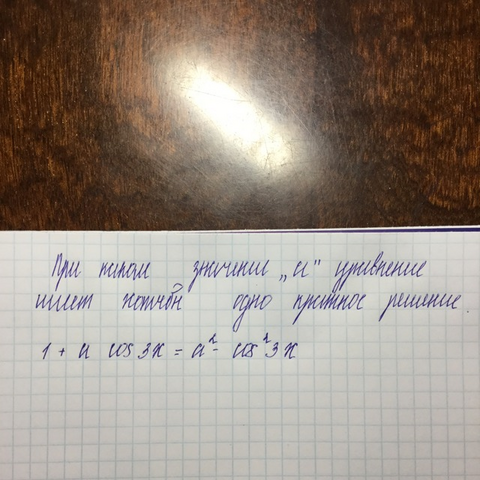 При каком значении „а" уравнение
имеет хотя бы одно кратное решение.
1 + a cos 3x = a² - cos² 3x